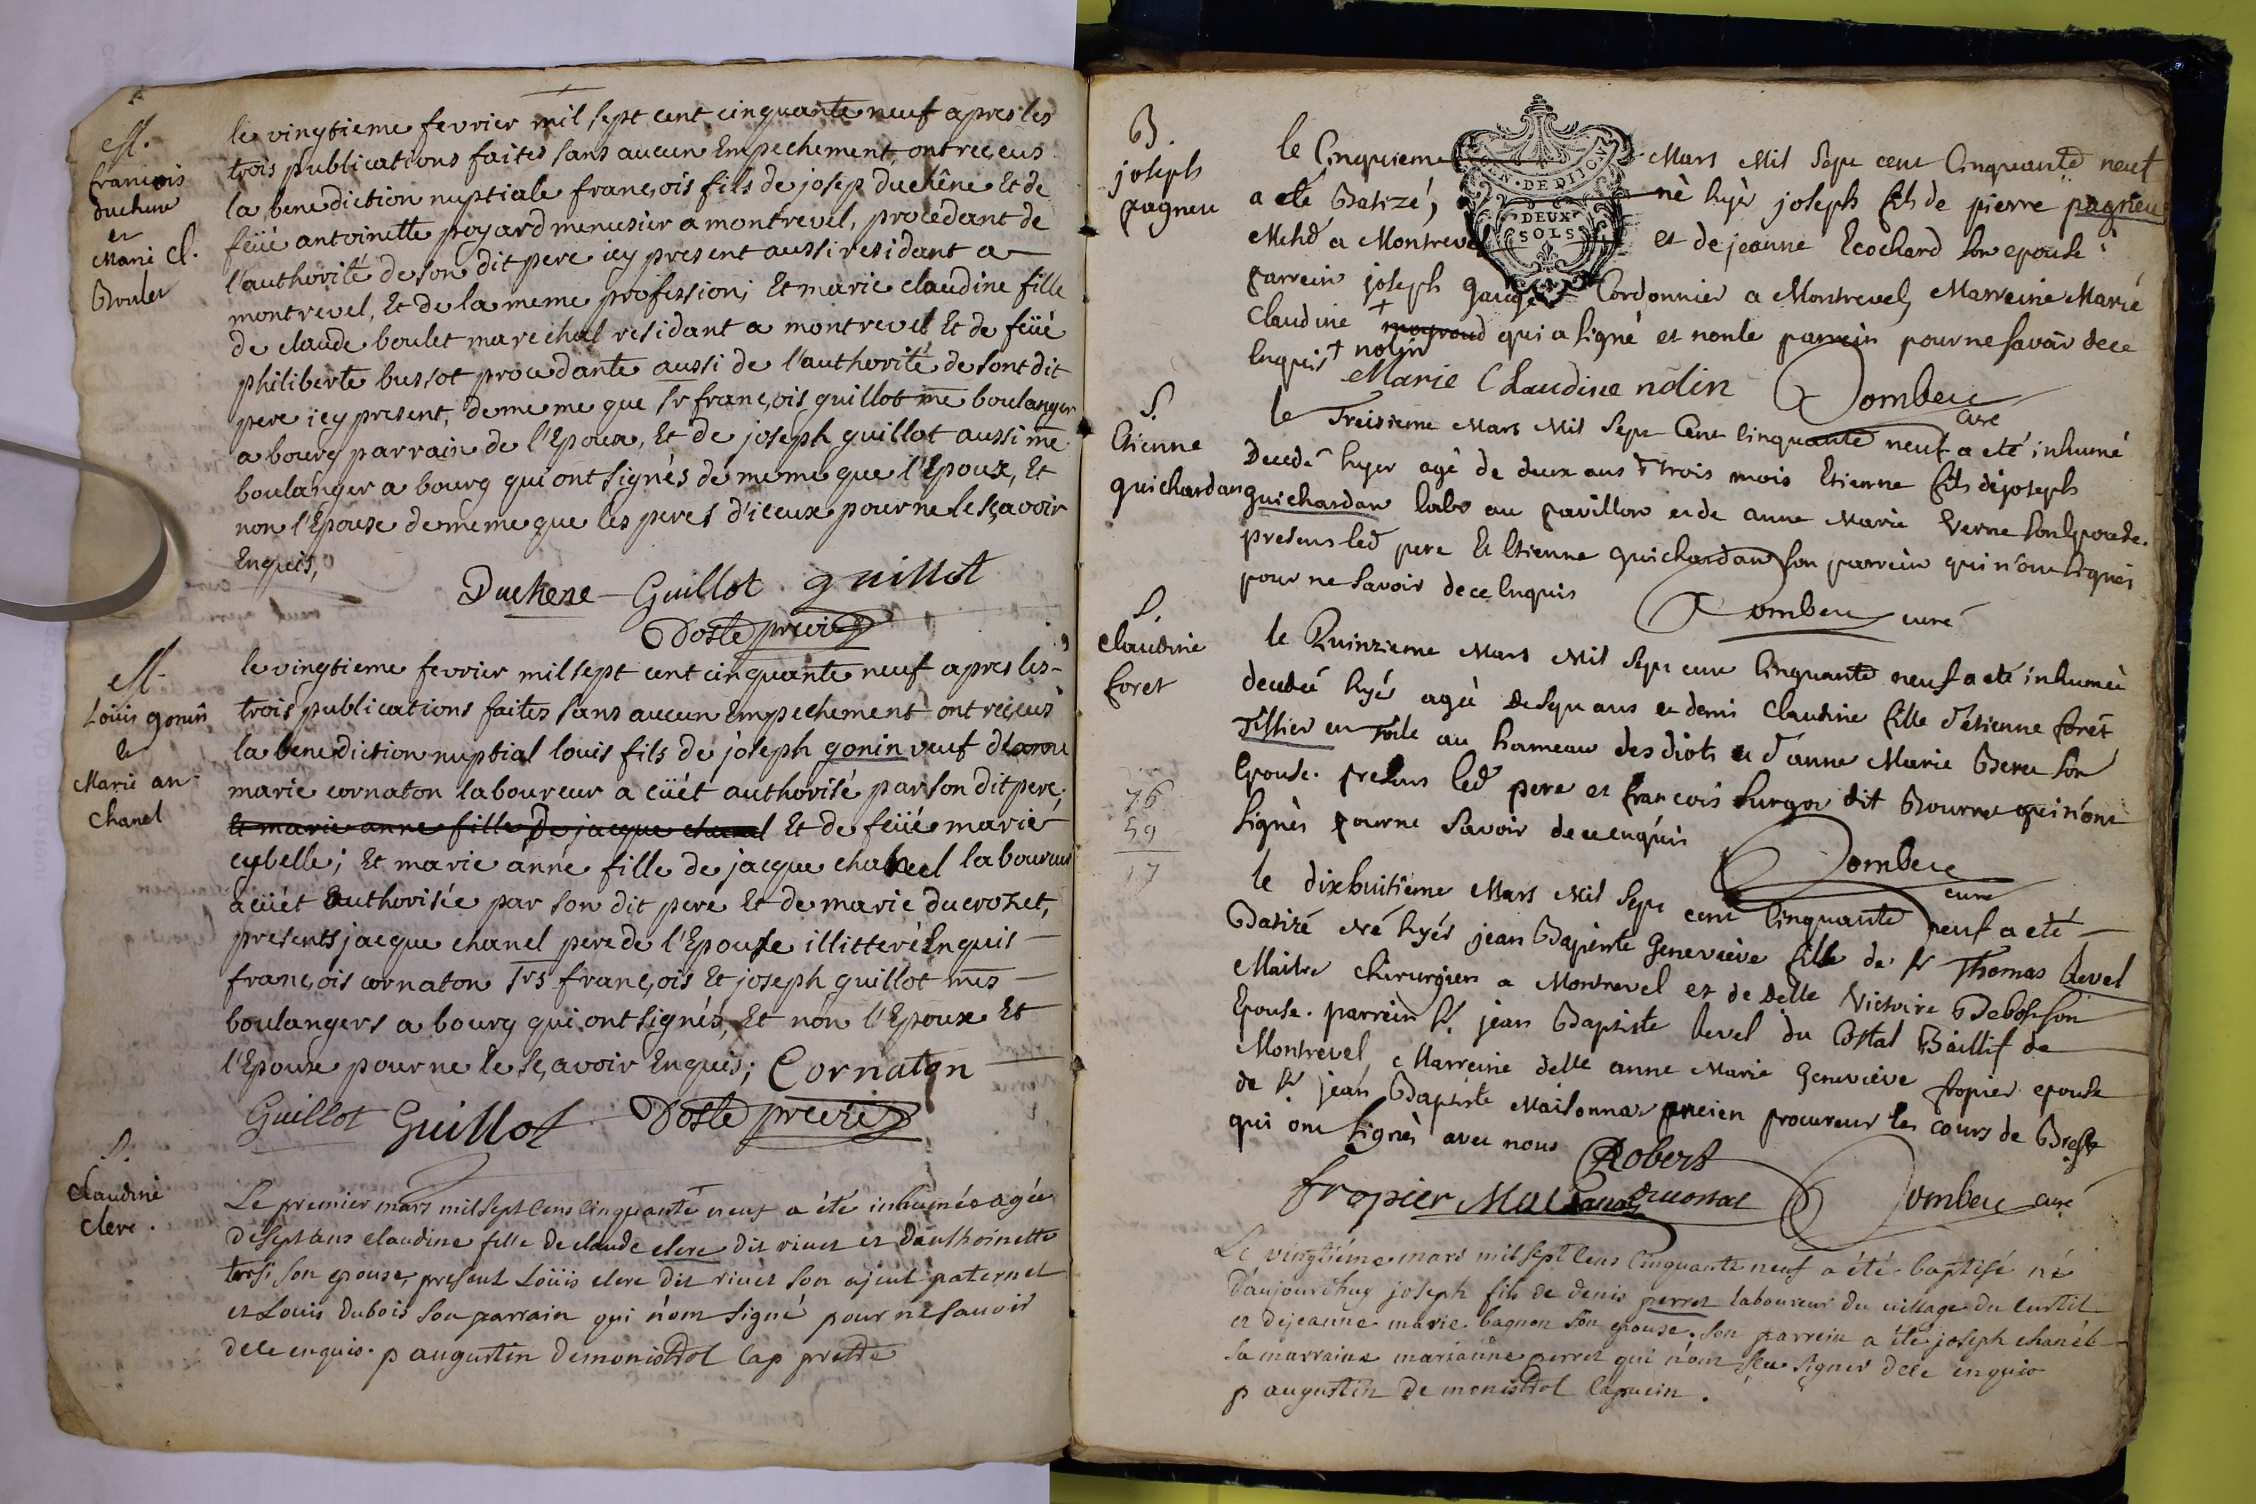 M.
francois
duchene
et
Marie Cl.
Boulet
le vingtieme fevrier mil sept cent cinquante neuf apres les
trois publications faites sans aucun Empechement, ont reçeus
la benediction nuptiale françois fils de josep duchêne Et de
feüe antoinette poyard menusier a montrevel, procedant de
l'authorité de son dit pere icy present aussi residant a
montrevel, Et de la meme profession; Et marie claudine fille
de claude boulet marechal residant a montrevel Et de feüé
philiberte bussot procedante aussi de l'authorité de sont dit
pere icy present, de meme que Sr françois guillot me boulanger
a bourg parrain de l'Epoux, Et de joseph guillot aussi me
boulanger a bourg qui ont signés de meme que l'Epoux, Et
non l'Epouse de meme que les peres d'iceux pour ne le sçavoir
Enquis,
Duchene Guillot guillot
Doste
M.
Loüis gonin
et
Marie an-
chanel
le vingtieme fevrier mil sept cent cinquante neuf apres les
trois publications faites sans aucun Empechement ont reçeus
la benediction nuptial louis fils de joseph gonin veuf
marie cornaton laboureur a cüét authorisé par son dit pere
Et marie anne fille De jacque chanel Et de feüé marie
cybelle; Et marie anne fille de jacque chanel laboureur
a cüét authorisée par son dit pere Et de marie ducrozet,
presents jacque chanel pere de l'Epouse illitteré Enquis
françois cornaton Srs françois Et joseph guillot mes
boulangers a bourg qui ont signés, Et non l'Epoux Et
l'Epouse pour ne le sçavoir Enquis; Cornaton
Guillot Guillot Doste
S.
Claudine
clerc.
Le premier mars mil sept cens cinquante neuf a été inhumée agée
de sept ans claudine fille de claude clerc dit rivet et d'anthoinette
son epouse, present Loüis clerc dit rivet son ajeul paternel
et Louis dubois son parrain qui n'ont signé pour ne savoir
de ce enquis. p augustin de monistrol cap pretre
B.
joseph
pagneu
GEN. DE DIJON
DEUX
SOLS
le Cinquieme Mars Mil Sept cent Cinquante neuf
a eté Batizé, né hyer joseph fils de pierre pagneu
Mchd a Montrevel et de jeanne Ecochard son epouse
parrein joseph Cordonnier a Montrevel, Marreine Marie
Claudine + qui a signé et non le parrein pour ne savoir de ce
Enquis + nolin
Marie Claudine nolin Dombeu
curé
S.
Etienne
guichardan
le Treisieme Mars Mil Sept Cent Cinquante neuf a eté inhumé
Decedé hyer agé de deux ans & trois mois Etienne fils de joseph
guichardan labr au pavillon et de anne Marie Verne son Epouse.
presens led pere Et Etienne guichardan son parrein qui n'ont signés
pour ne savoir de ce Enquis Dombeu curé
S.
Claudine
foret
le Quinzieme Mars Mil Sept cent Cinquante neuf a eté inhumée
decedée hyer agée de sept ans et demi Claudine fille d'etienne foret
Tissier en Toile au hameau des diots et d'anne Marie Beru son
Epouse. presens led pere et francois surgon dit Bourru qui n'ont
signés pour ne savoir de ce enquis
Dombeu
curé
76
59
17
le dixhuitieme Mars Mil Sept cent Cinquante neuf a eté
Batizé né hyer jean Baptiste Genevieve fille de Sr Thomas Revel
Maitre chirurgien a Montrevel et de Delle Victoire Debosson
Epouse. parrein Sr. jean Baptiste Revel du Costal Baillif de
Montrevel Marreine delle anne Marie Genevieve fropier epouse
de Sr jean Baptiste Maisonnas ancien procureur les cours de Bresse
qui ont signés avec nous Robert
fropier Dombeu curé
Le vingtiéme mars mil sept cens cinquante neuf a été baptisé né
d'aujourdhuy joseph fils de denis perret laboureur du village du curtil
et de jeanne marie bagnon son epouse. Son parrein a été joseph chanel
sa marraine marianne perret qui n'ont sçu signer de ce enquis
p augustin de monistrol capucin.